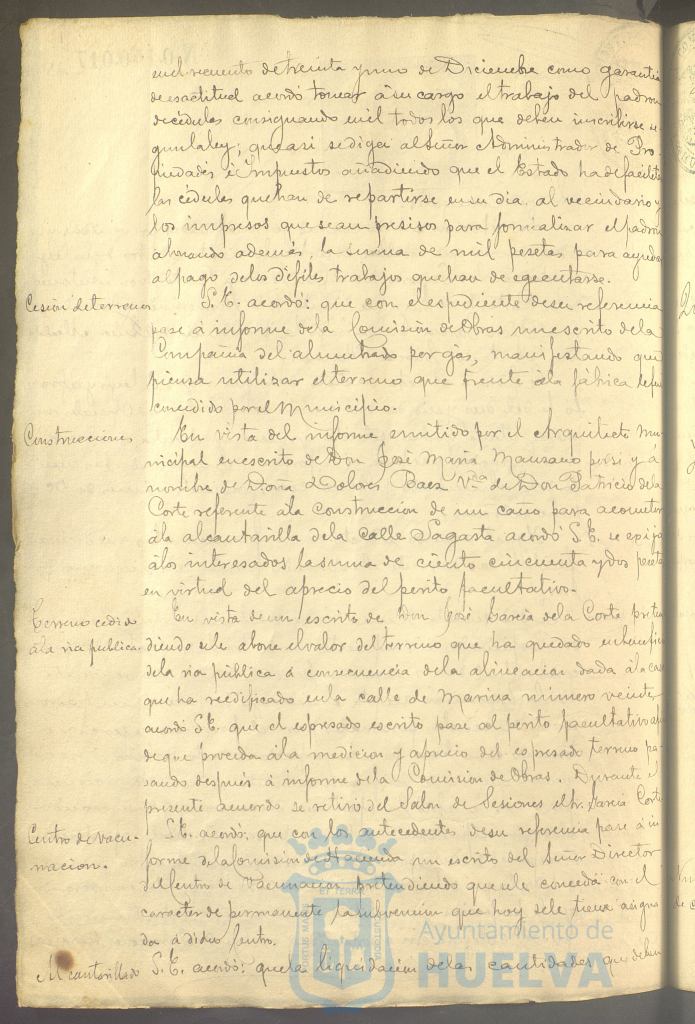 en el recuento de treinta y uno de Diciembre como garantia
de esactitud acordó tomar á su cargo el trabajo del padron
de cédulas consignando en él todos los que deben inscribirse se-
gun la ley; que asi se diga al Señor Administrador de Pro-
piedades é Impuestos añadiendo que el Estado ha de facilitar
las cédulas que han de repartirse en su dia al vecindario y
los impresos que sean presisos para formalizar el padron
abonando además, la suma de mil pesetas para ayudar
al pago de los difiles trabajos que han de egecutarse.
Cesion de terrenos
S.E. acordó: que con el espediente de su referencia
pase á informe de la Comision de Obras un escrito de la
Compañia del alumbrado por gás, manifestando que
piensa utilizar el terreno que frente á la fábrica le fué
concedido por el Municipio.
Construcciones
En vista del informe emitido por el Arquitecto Mu-
nicipal en escrito de Don José Maria Manzano por si y á
nombre de Doña Dolores Baez V.da de Don Patricio de la
Corte referente á la construccion de un caño para acometer
á la alcantarilla de la calle Sagasta acordó S.E. se exija
á los interesados la suma de ciento cincuenta y dos pesetas
en virtud del aprecio del perito facultativo.
Terreno cedido
á la via publica
En vista de un escrito de Don José Garcia de la Corte preten-
diendo se le abone el valor del terreno que ha quedado en beneficio
de la via pública á consecuencia de la alineacion dada á la casa
que ha reedificado en la calle de Marina número veinte
acordó S.E. que el espresado escrito pase al perito facultativo
de que proceda á la medicion y aprecio del espresado terreno pa-
sando después á informe de la Comision de Obras. Durante el
presente acuerdo se retiró del Salon de Sesiones el Sr. Garcia Corte
Centro de vacu-
nacion.
S.E. acordó: que con los antecedentes de su referencia pase á in-
forme de la Comision de Hacienda un escrito del Señor Director
del Centro de Vacunacion pretendiendo que se le conceda con el
caracter de permanente la subvencion que hoy se le tiene asigna-
da á dicho Centro.
Alcantarillado
S.E. acordó: que la liquidacion de las cantidades que deben
Ayuntamiento de
HUELVA